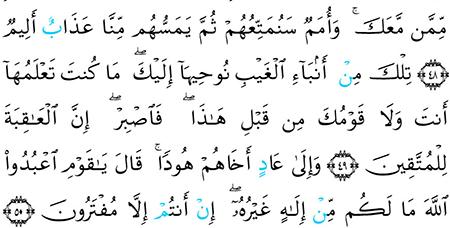 مِّمَّن مَّعَكَ ۚ وَأُمَمٌ سَنُمَتِّعُهُمْ ثُمَّ يَمَسُّهُم مِّنَّا عَذَابٌ أَلِيمٌ
﴿٤٨﴾ تِلْكَ مِنْ أَنۢبَآءِ ٱلْغَيْبِ نُوحِيهَآ إِلَيْكَ ۖ مَا كُنتَ تَعْلَمُهَآ
أَنتَ وَلَا قَوْمُكَ مِن قَبْلِ هَـٰذَا ۖ فَٱصْبِرْ ۖ إِنَّ ٱلْعَـٰقِبَةَ
لِلْمُتَّقِينَ ﴿٤٩﴾ وَإِلَىٰ عَادٍ أَخَاهُمْ هُودًا ۚ قَالَ يَـٰقَوْمِ ٱعْبُدُوا۟
ٱللَّهَ مَا لَكُم مِّنْ إِلَـٰهٍ غَيْرُهُۥٓ ۖ إِنْ أَنتُمْ إِلَّا مُفْتَرُونَ ﴿٥٠﴾